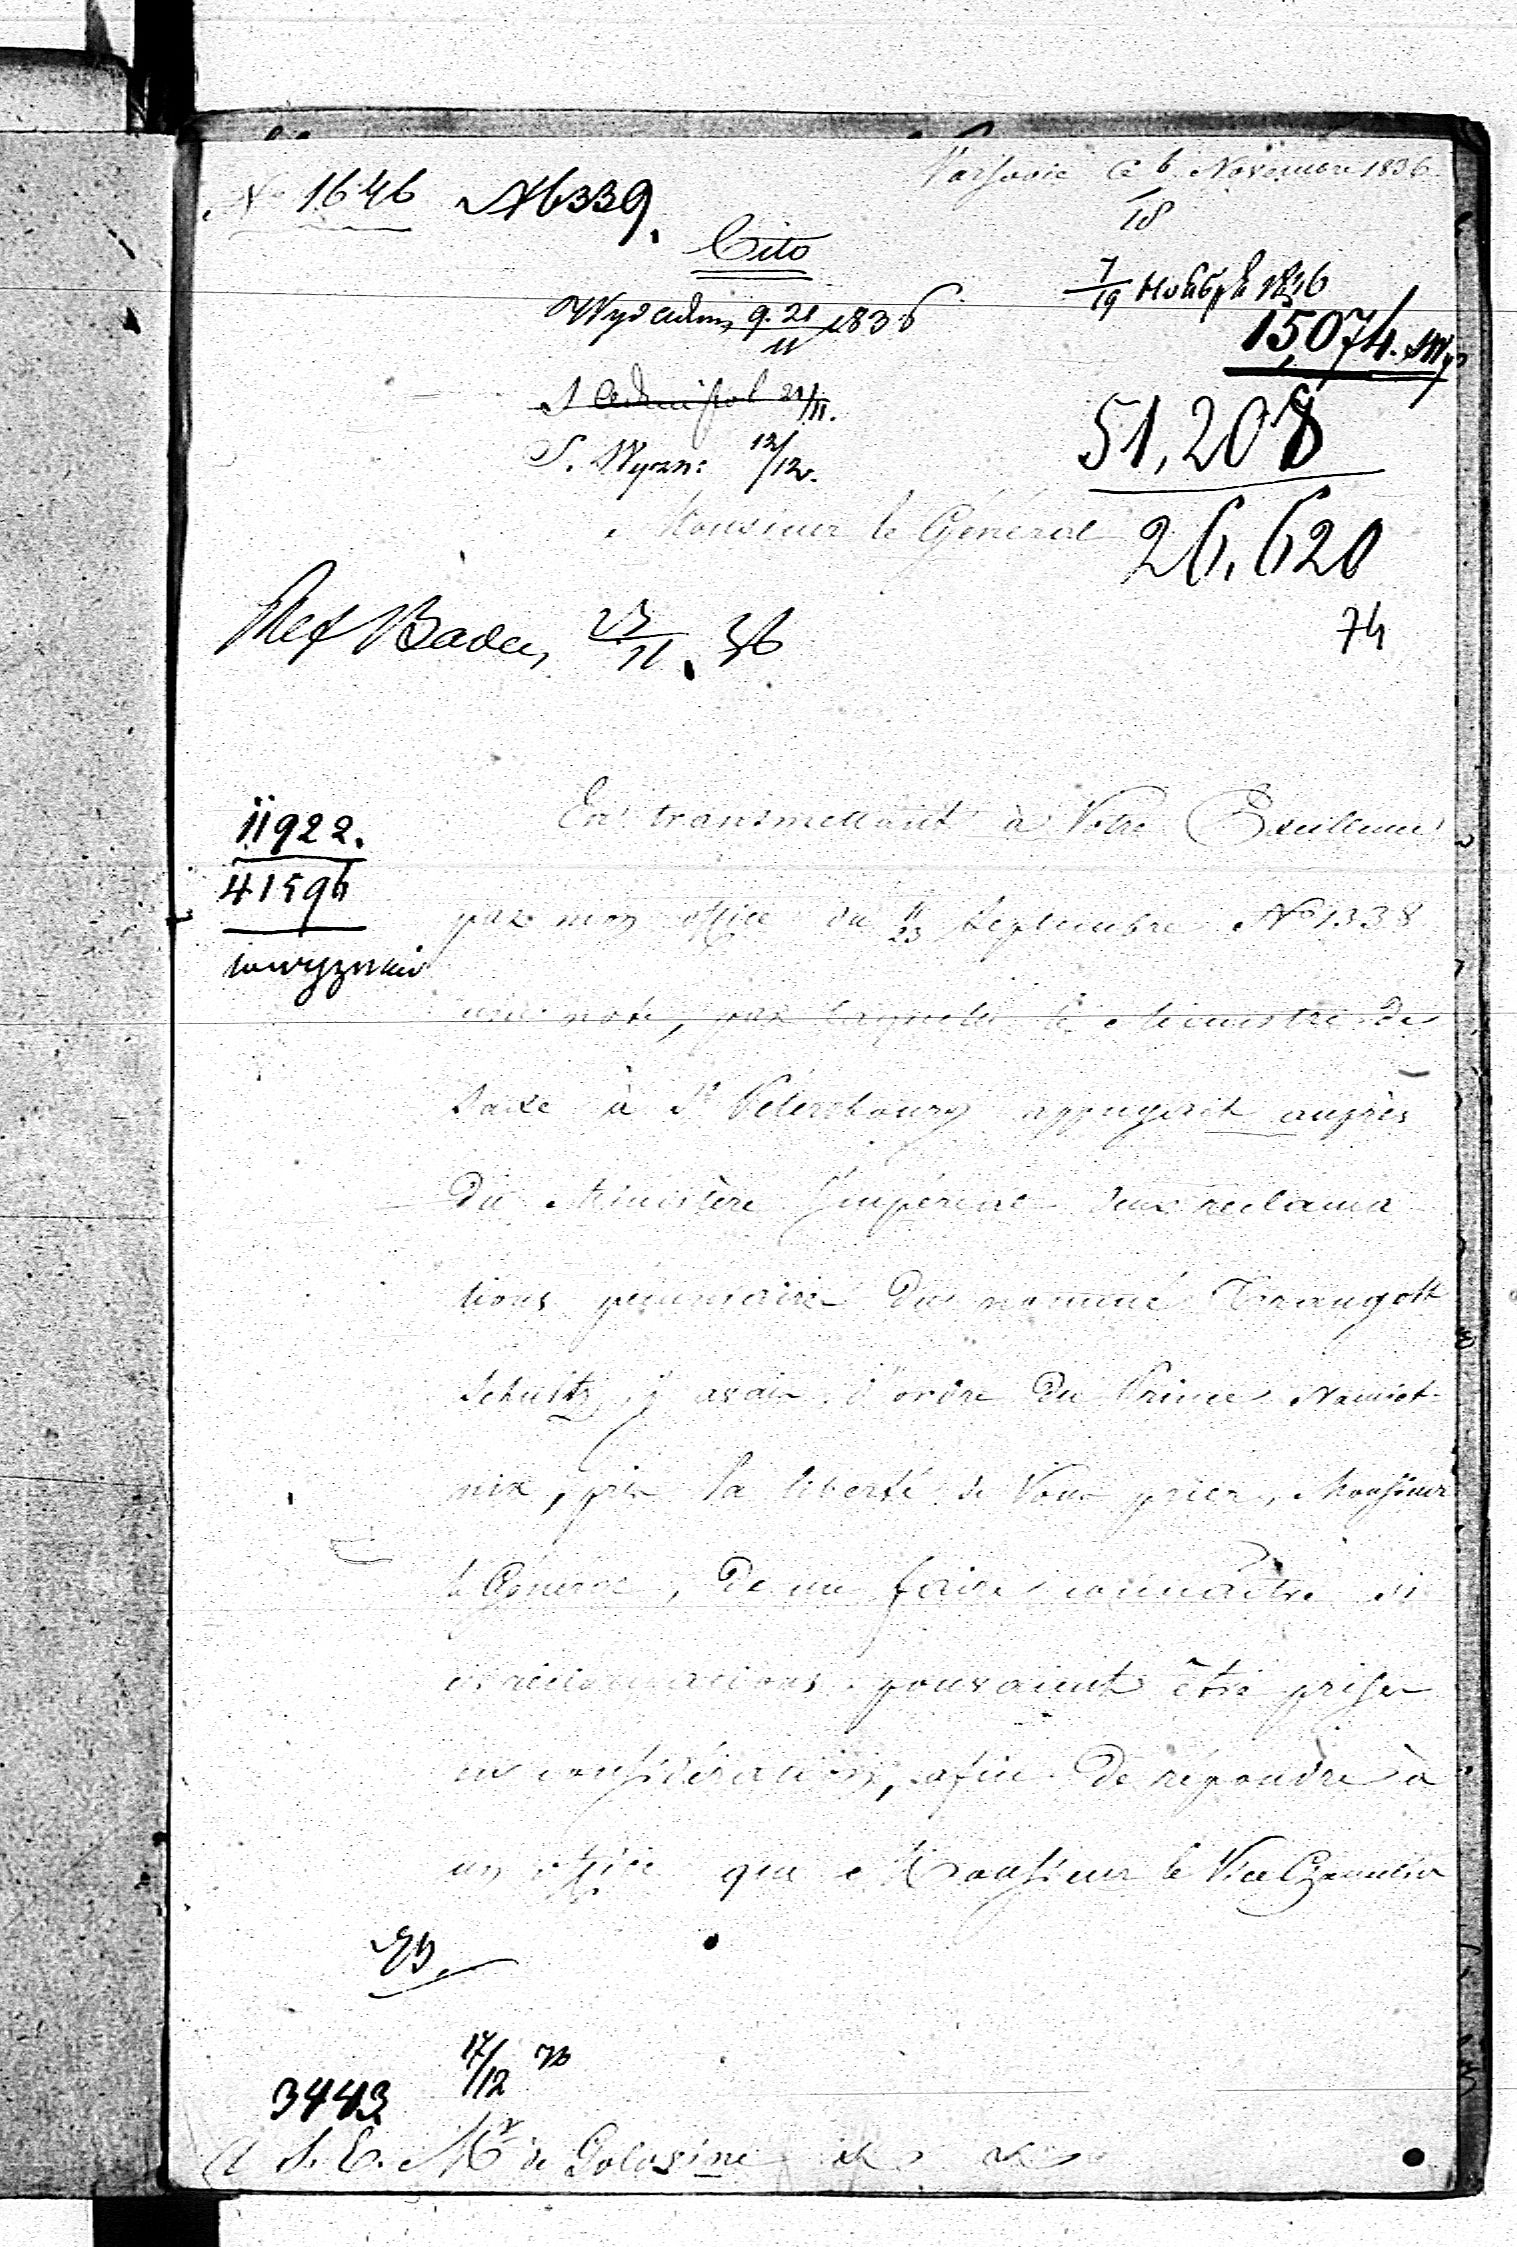 Varsovie ce 6 Novembre 1836
18
No 1646 No 6339.
Cito
7/19 Ноября 1836
9. 21/11 1836
15,074.
21/11.
51,208
S. Wyzn: 12/12.
Monsieur le Général
26,620
Ref Bader, 23/11. 36
74
11922.
41596
En transmettant à Votre Excellence
par mon office du 11/23 Septembre No 1338
une note, par laquelle le Ministre de
Saxe à St Pétersbourg appuyait auprès
du Ministère Impérial deux reclama
tions pécuniaires du nommé Traugott
Schultz, j'avais, d'ordre du Prince Namiest-
nik, pris la liberté de Vous prier, Monsieur
le Général, de me faire connaître si
ces réclamations pouvaient être prises
en considération, afin de répondre à
un office que Monsieur le Vice Chancelier
17/12 36
3443
A S. E. Mr de Golovine